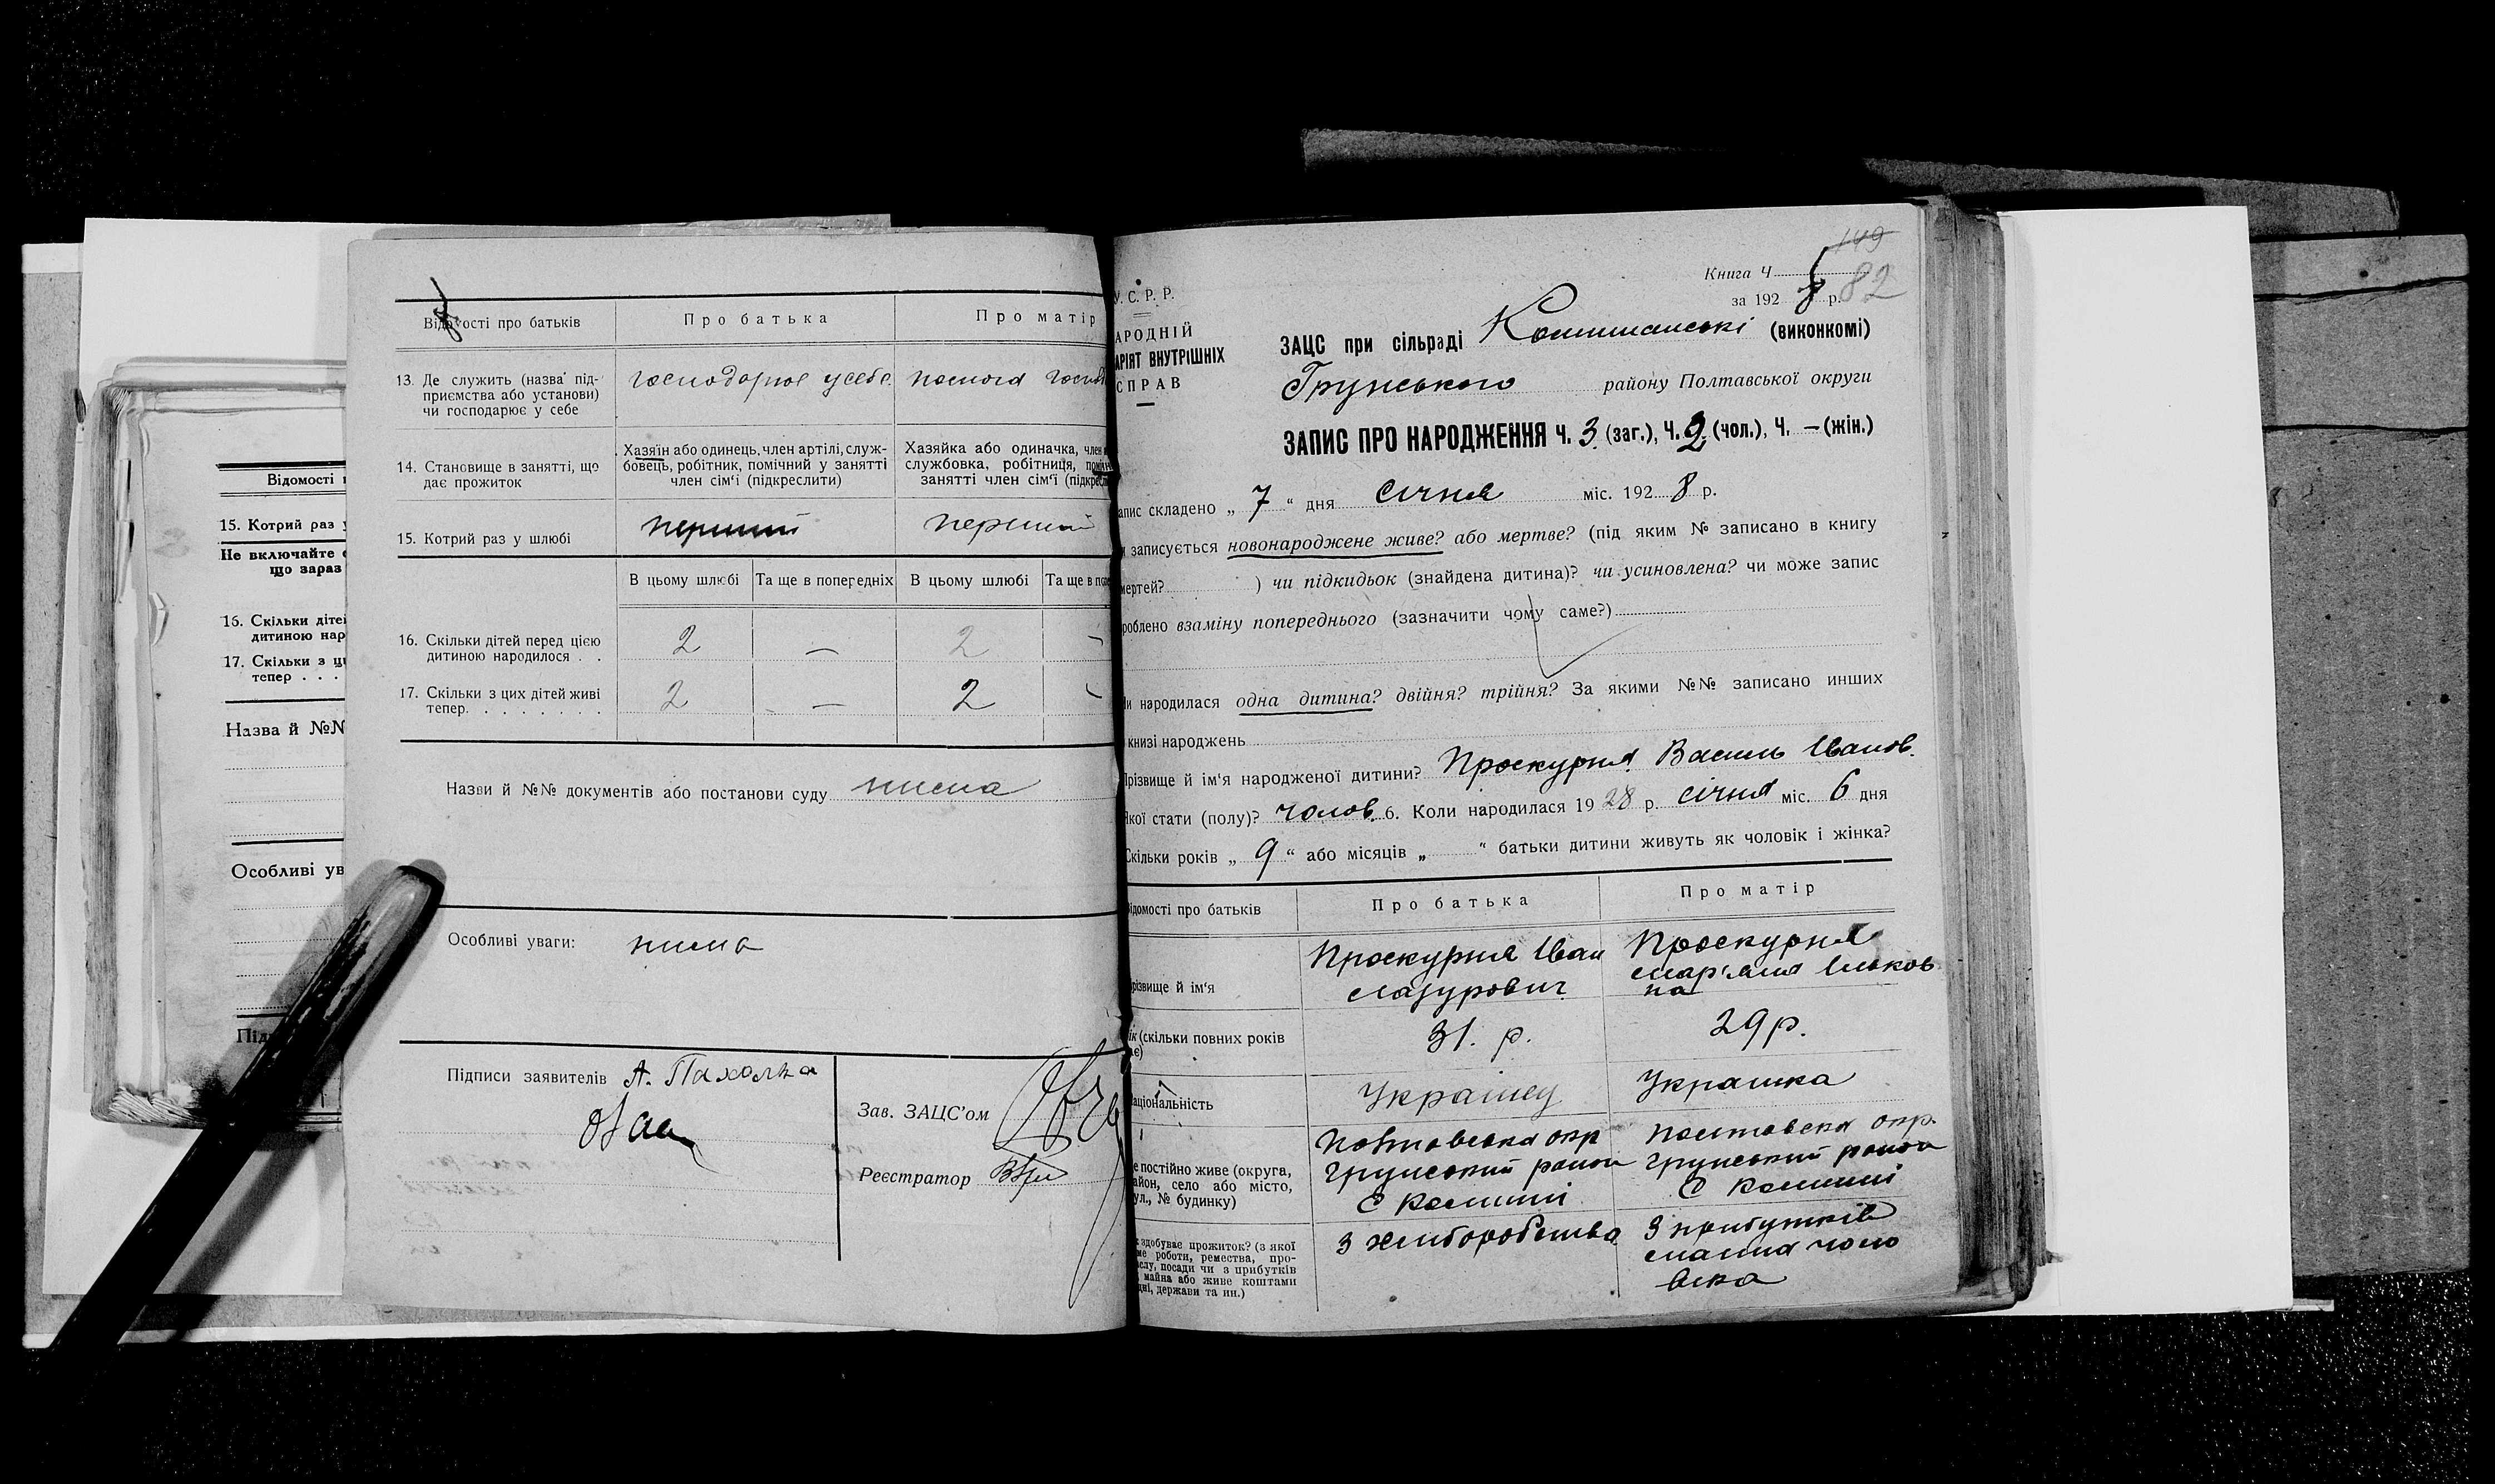 Відомості про батьків
Про батька
Про матір
13. Де служить (назва під-
приємства або установи)
чи господарює у себе
господарює у себе
14. Становище в занятті, що
дає прожиток
Хазяїн або одинець, член артілі, служ-
бовець, робітник, помічний у занятті
член сім'ї (підкреслити)
Хазяйка або одиначка, член
службовка, робітниця,
занятті член сім'ї
15. Котрий раз у шлюбі
перший
перший
В цьому шлюбі
Та ще в попередніх
В цьому шлюбі
Та ще в
16. Скільки дітей перед цією
дитиною народилося . .
2 — 2 -
17. Скільки з цих дітей живі
тепер. . . . . . . .
2 — 2 -
Назви й №№ документів або постанови суду нема
Особливі уваги: нема
Підписи заявителів А. Пахолка
Зав. ЗАЦС'ом
Реєстратор
Відомості
15. Котрий раз
Не включайте
що зараз
16. Скільки
дитиною
17. Скільки з
тепер . . .
Назва й
Особливі
149
Книга Ч. 82
за 192 8 р.
У. С. Р. Р.
ВНУТРІШНІХ
СПРАВ
ЗАЦС при сільраді (виконкомі)
Грунського району Полтавської округи
ЗАПИС ПРО НАРОДЖЕННЯ Ч. 3 (заг.), Ч. 2 (чол.), Ч. — (жін.)
складено „ 7 “ дня січня міс. 192 8 р.
записується новонароджене живе? або мертве? (під яким № записано в книгу
) чи підкидьок (знайдена дитина)? чи усиновлена? чи може запис
взаміну попереднього (зазначити чому саме?)
народилася одна дитина? двійня? трійня? За якими №№ записано инших
книзі народжень
й ім'я народженої дитини? Проскурня Василь Іванов.
стати (полу)? чолов. 6. Коли народилася 19 28 р. січня міс. 6 дня
Скільки років „ 9 “ або місяців „ “ батьки дитини живуть як чоловік і жінка?
про батьків
Про батька
Про матір
й ім'я
Проскурня Іван
Лазурович
Проскурня
Мар'яна Ільков
на
(скільки повних років
31. р.
29 р.
Українец
Украінка
постійно живе (округа,
село або місто,
№ будинку)
Полтавська окр
Грунський район
С Комиші
Полтавська окр.
Грунський район
С Комиші
здобуває прожиток? (з якої
роботи, ремества, про-
посади чи з прибутків
майна або живе коштами
держави та ин.)
З хліборобства
З прибутків
чоло
віка